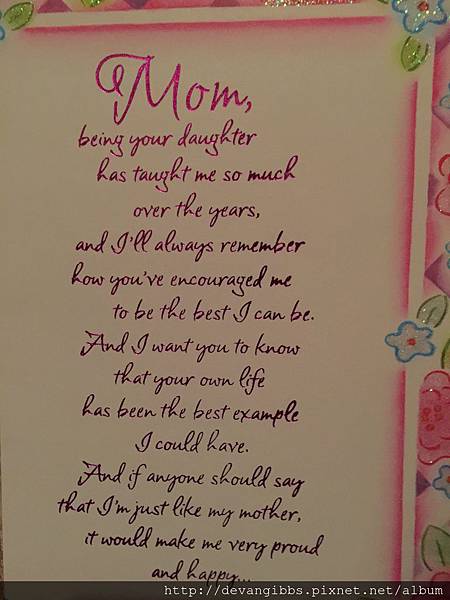 Mom,
being your daughter
has taught me so much
over the years,
and I'll always remember
how you've encouraged me
to be the best I can be.
And I want you to know
that your own life
has been the best example
I could have.
And if anyone should say
that I'm just like my mother,
it would make me very proud
and happy...
http://devangibbs.pixnet.net/album